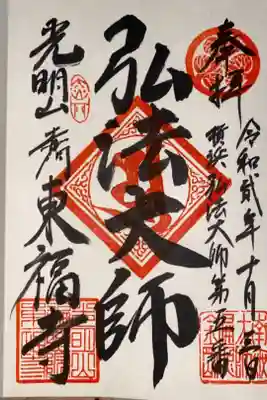 奉拝
令和弐年十月三日
横浜弘法大師第五番
弘法大師
光明山
東福寺